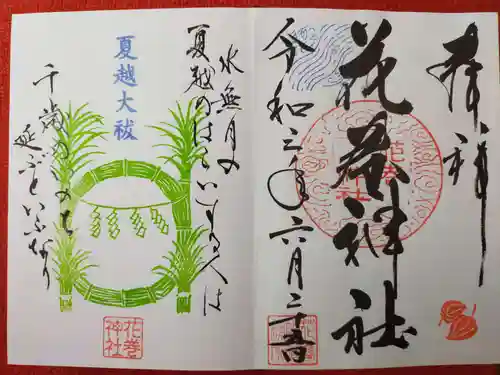 奉拝
花巻神社
令和三年六月二十五日
水無月の
夏越のはらいする人は
夏越大祓
千歳のいのち
延ぶといふなり
花巻神社